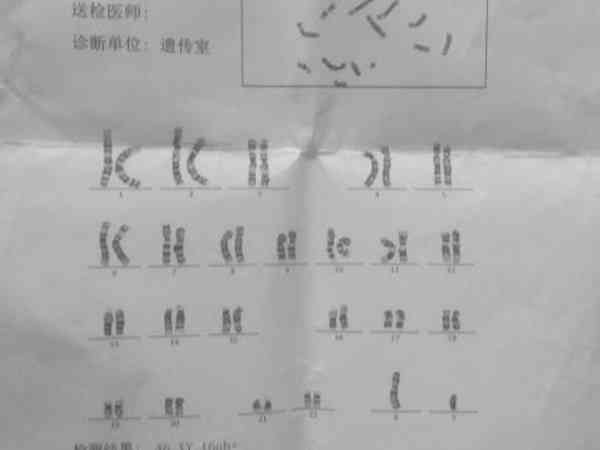 送检医师：
诊断单位： 遗传室
1 2 3 4 5
6 7 8 9 10 11 12
13 14 15 16 17 18
19 20 21 22 X Y
检测结果： 46,XY,16qh+